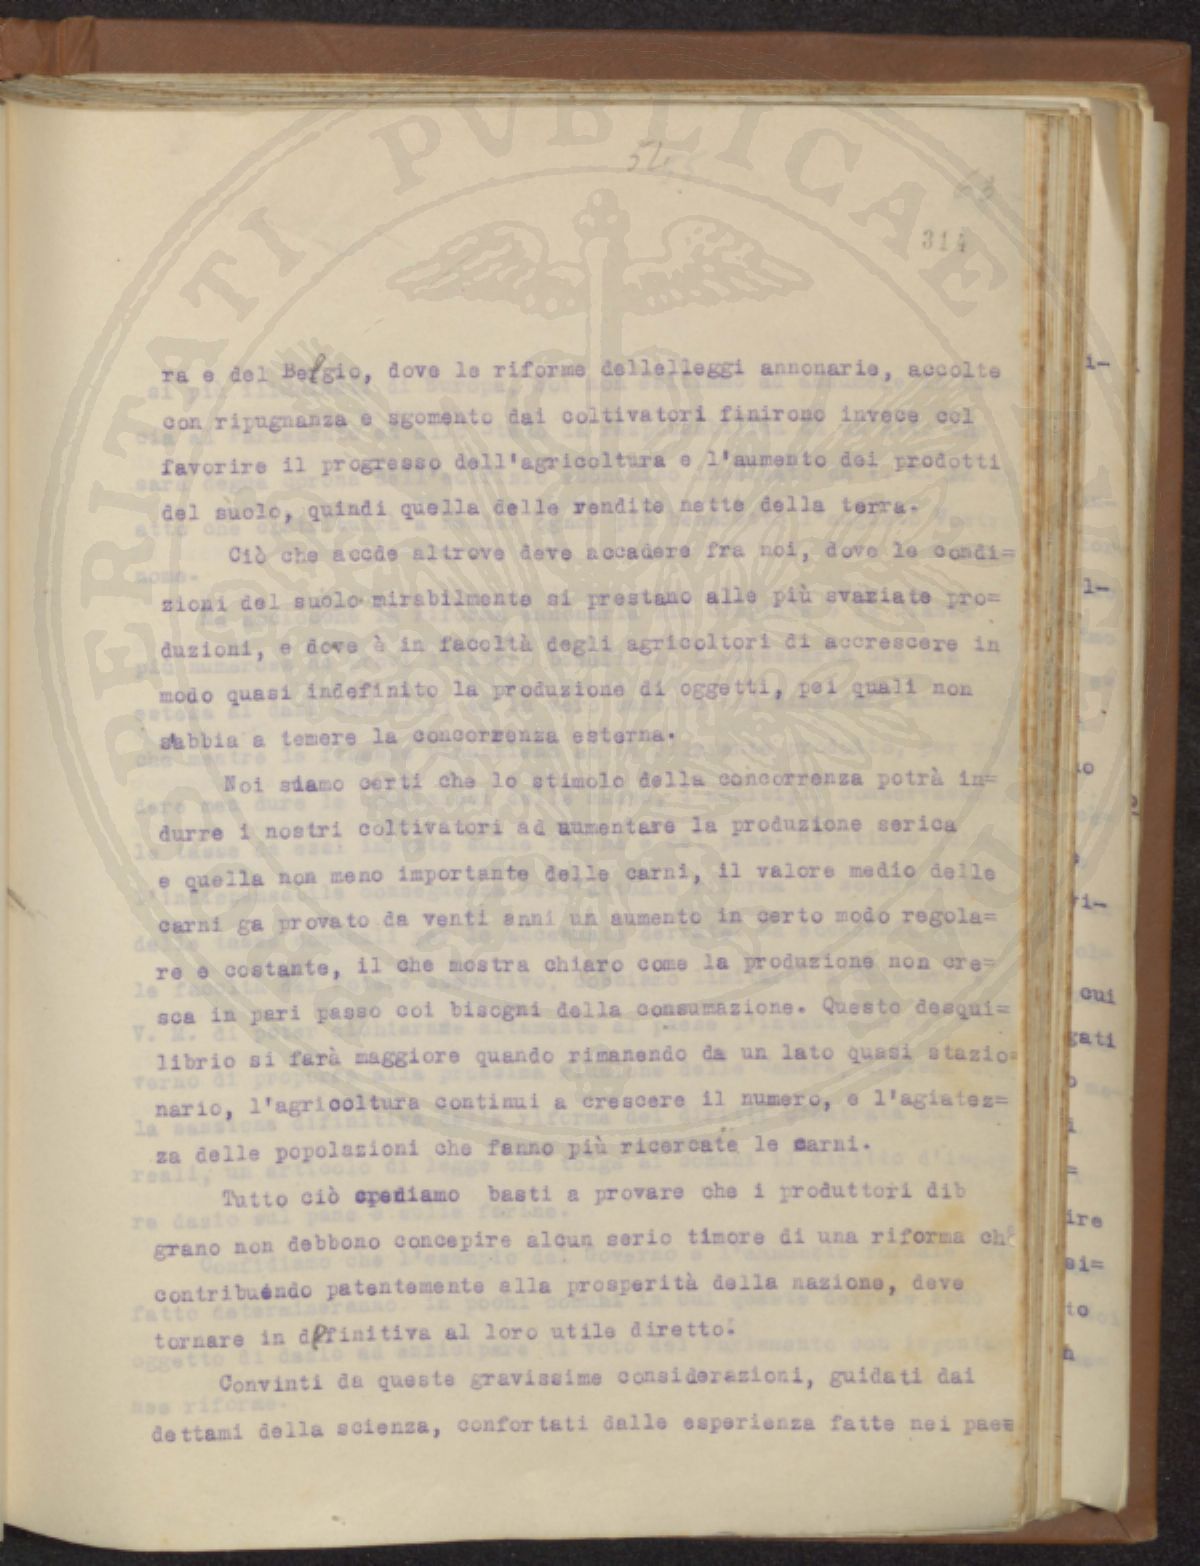 PROSPERITATI PVBLICAE
63
314
ra e del Belgio, dove le riforme dellelleggi annonarie, accolte
con ripugnanza e sgomento dai coltivatori finirono invece col
favorire il progresso dell'agricoltura e l'aumento dei prodotti
del suolo, quindi quella delle rendite nette della terra.
Ciò che accde altrove deve accadere fra noi, dove le condi=
zioni del suolo mirabilmente si prestano alle più svariate pro=
duzioni, e dove è in facoltà degli agricoltori di accrescere in
modo quasi indefinito la produzione di oggetti, pei quali non
s'abbia a temere la concorrenza esterna.
Noi siamo certi che lo stimolo della concorrenza potrà in=
durre i nostri coltivatori ad aumentare la produzione serica
e quella non meno importante delle carni, il valore medio delle
carni ga provato da venti anni un aumento in certo modo regola=
re e costante, il che mostra chiaro come la produzione non cre=
sca in pari passo coi bisogni della consumazione. Questo desqui=
librio si farà maggiore quando rimanendo da un lato quasi stazio=
nario, l'agricoltura continui a crescere il numero, e l'agiatez=
za delle popolazioni che fanno più ricercate le carni.
Tutto ciò crediamo basti a provare che i produttori dib
grano non debbono concepire alcun serio timore di una riforma che
contribuendo patentemente alla prosperità della nazione, deve
tornare in definitiva al loro utile diretto.
Convinti da queste gravissime considerazioni, guidati dai
dettami della scienza, confortati dalle esperienza fatte nei pae=
i-
l-
vi-
cui
gati
ire
si=
to